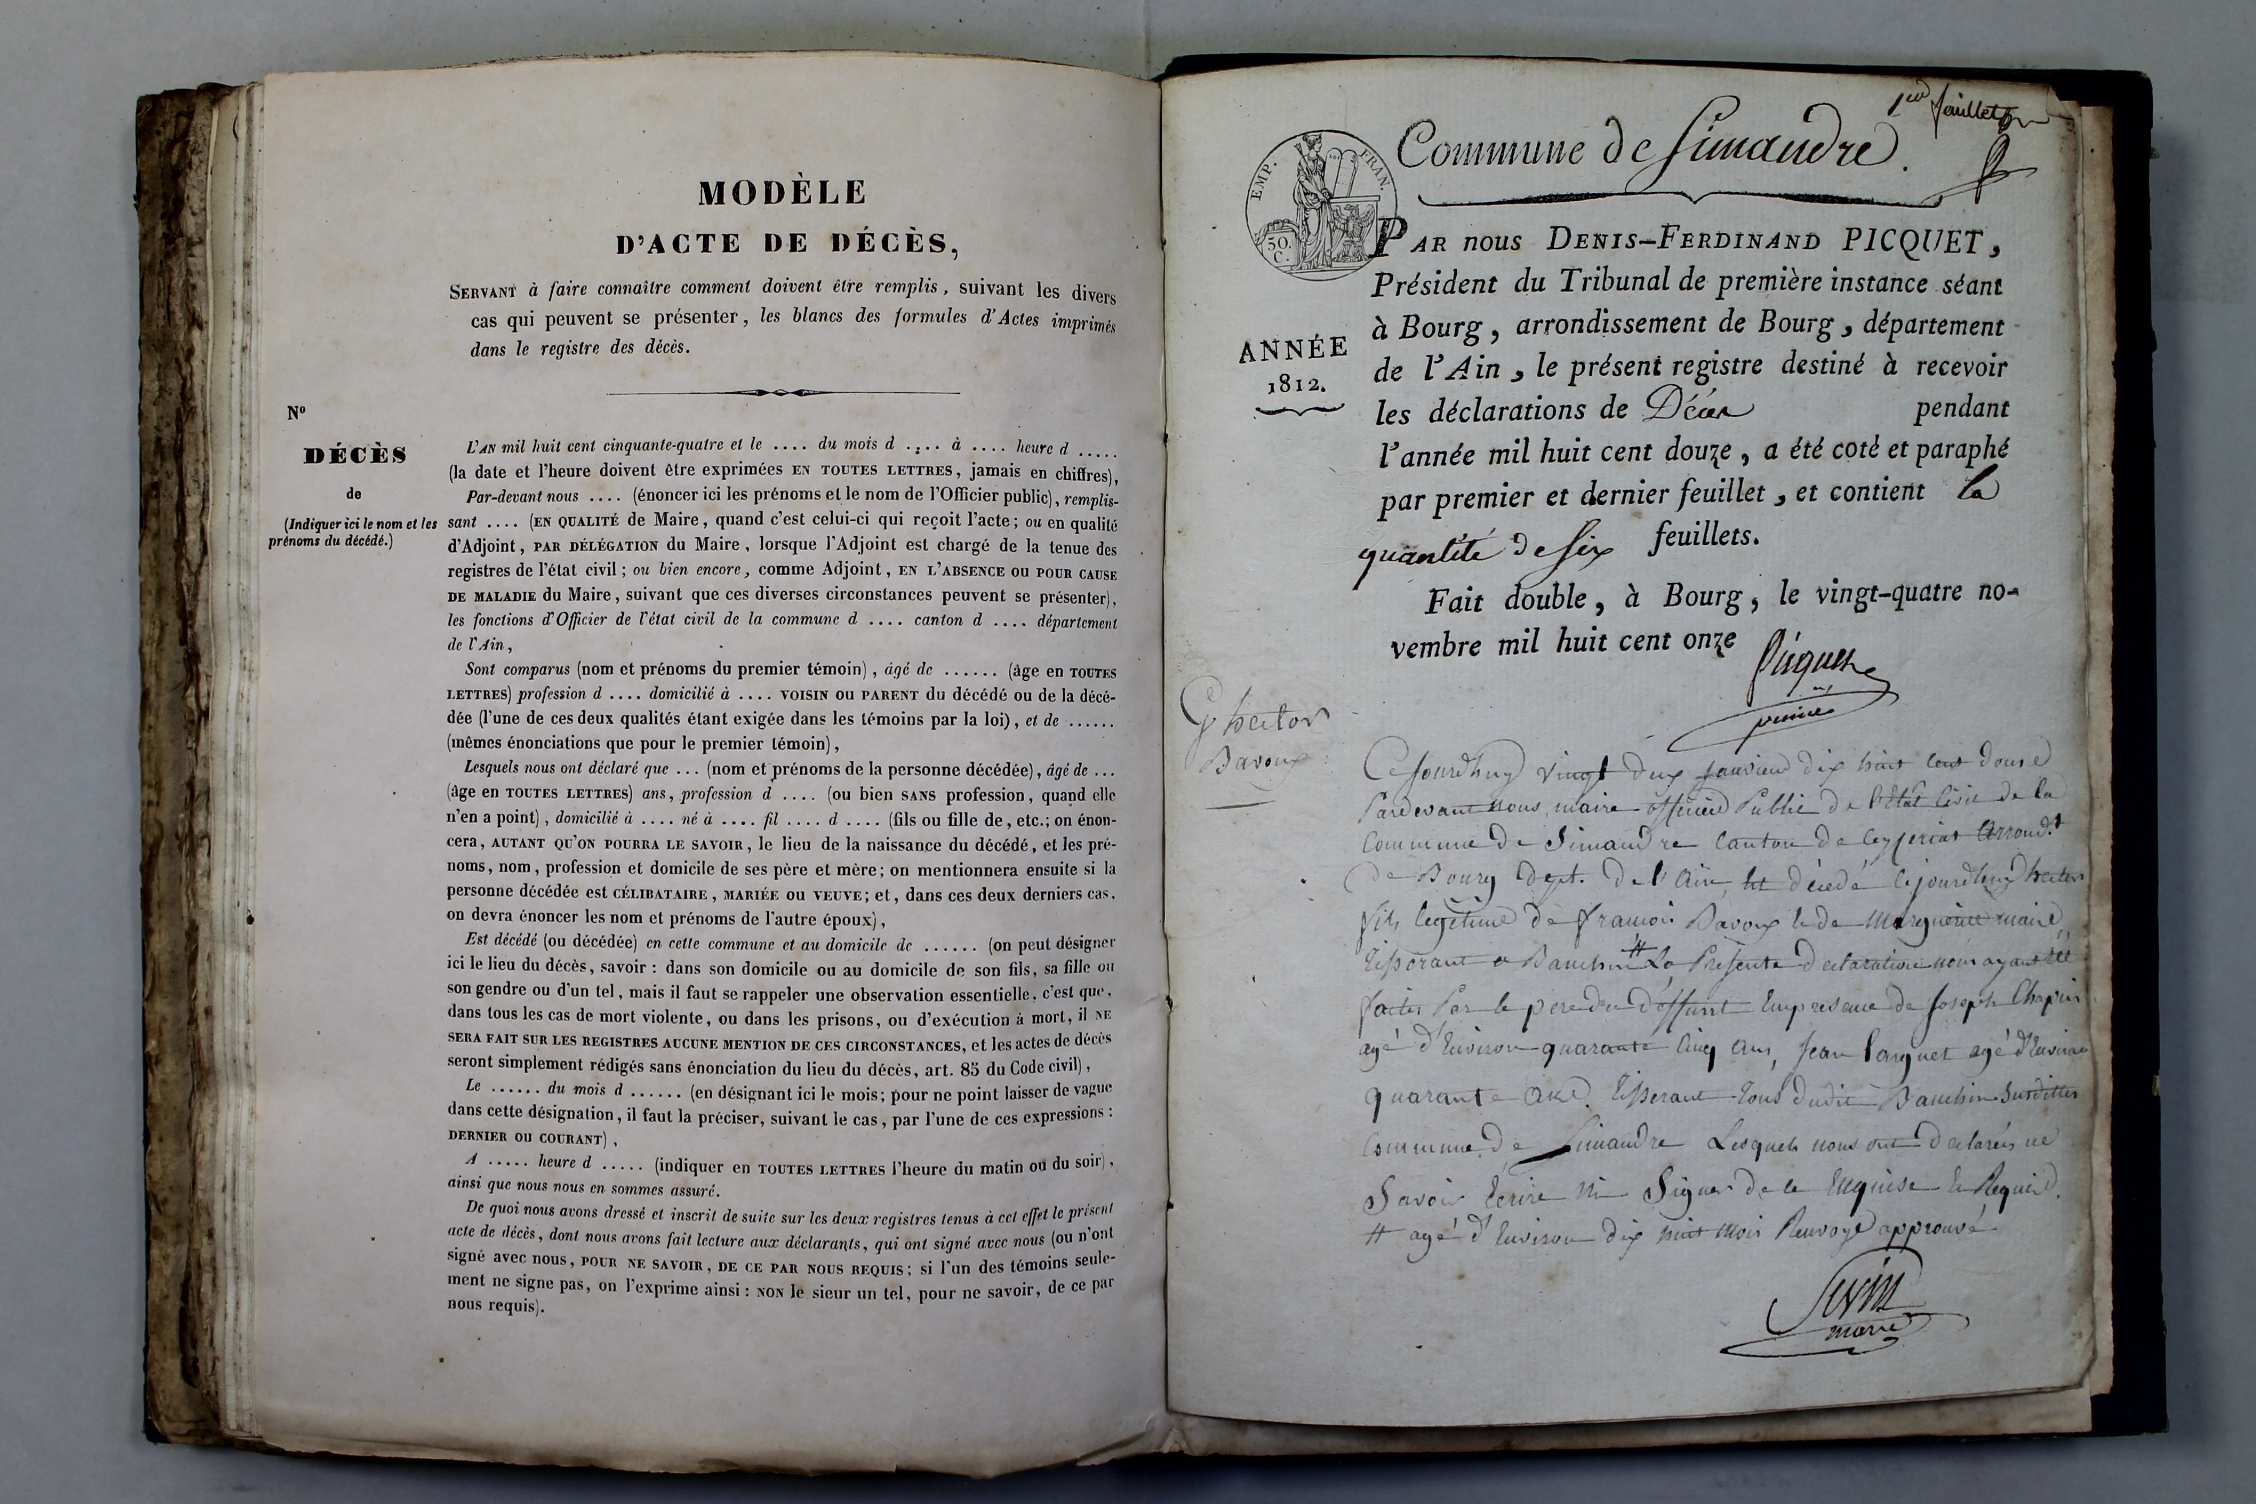 MODÈLE
D'ACTE DE DÉCÈS,
SERVANT à faire connaître comment doivent être remplis, suivant les divers
cas qui peuvent se présenter, les blancs des formules d'Actes imprimés
dans le registre des décès.
N°
DÉCÈS
de
(Indiquer ici le nom et les
prénoms du décédé.)
L'AN mil huit cent cinquante-quatre et le .... du mois d .... à .... heure d .....
(la date et l'heure doivent être exprimées EN TOUTES LETTRES, jamais en chiffres),
Par-devant nous .... (énoncer ici les prénoms et le nom de l'Officier public), remplis-
sant .... (EN QUALITÉ de Maire, quand c'est celui-ci qui reçoit l'acte; ou en qualité
d'Adjoint, PAR DÉLÉGATION du Maire, lorsque l'Adjoint est chargé de la tenue des
registres de l'état civil; ou bien encore, comme Adjoint, EN L'ABSENCE OU POUR CAUSE
DE MALADIE du Maire, suivant que ces diverses circonstances peuvent se présenter),
les fonctions d'Officier de l'état civil de la commune d .... canton d .... département
de l'Ain,
Sont comparus (nom et prénoms du premier témoin), âgé de ...... (âge en TOUTES
LETTRES) profession d .... domicilié à .... VOISIN OU PARENT du décédé ou de la décé-
dée (l'une de ces deux qualités étant exigée dans les témoins par la loi), et de ......
(mêmes énonciations que pour le premier témoin),
Lesquels nous ont déclaré que ... (nom et prénoms de la personne décédée), âgé de ...
(âge en TOUTES LETTRES) ans, profession d .... (ou bien SANS profession, quand elle
n'en a point), domicilié à .... né à .... fil .... d .... (fils ou fille de, etc.; on énon-
cera, AUTANT QU'ON POURRA LE SAVOIR, le lieu de la naissance du décédé, et les pré-
noms, nom, profession et domicile de ses père et mère; on mentionnera ensuite si la
personne décédée est CÉLIBATAIRE, MARIÉE OU VEUVE; et, dans ces deux derniers cas,
on devra énoncer les nom et prénoms de l'autre époux),
Est décédé (ou décédée) en cette commune et au domicile de ...... (on peut désigner
ici le lieu du décès, savoir : dans son domicile ou au domicile de son fils, sa fille ou
son gendre ou d'un tel, mais il faut se rappeler une observation essentielle, c'est que,
dans tous les cas de mort violente, ou dans les prisons, ou d'exécution à mort, il NE
SERA FAIT SUR LES REGISTRES AUCUNE MENTION DE CES CIRCONSTANCES, et les actes de décès
seront simplement rédigés sans énonciation du lieu du décès, art. 85 du Code civil),
Le ...... du mois d ...... (en désignant ici le mois; pour ne point laisser de vague
dans cette désignation, il faut la préciser, suivant le cas, par l'une de ces expressions :
DERNIER OU COURANT),
A ..... heure d ..... (indiquer en TOUTES LETTRES l'heure du matin ou du soir),
ainsi que nous nous en sommes assuré.
De quoi nous avons dressé et inscrit de suite sur les deux registres tenus à cet effet le présent
acte de décès, dont nous avons fait lecture aux déclarants, qui ont signé avec nous (ou n'ont
signé avec nous, POUR NE SAVOIR, DE CE PAR NOUS REQUIS; si l'un des témoins seule-
ment ne signe pas, on l'exprime ainsi : NON le sieur un tel, pour ne savoir, de ce par
nous requis).
1er feuillet
Commune de Simandre.
EMP. FRAN.
50.
C.
PAR nous DENIS-FERDINAND PICQUET,
Président du Tribunal de première instance séant
à Bourg, arrondissement de Bourg, département
de l'Ain, le présent registre destiné à recevoir
les déclarations de Décès pendant
l'année mil huit cent douze, a été coté et paraphé
par premier et dernier feuillet, et contient la
quantité de Six feuillets.
Fait double, à Bourg, le vingt-quatre no-
vembre mil huit cent onze
Picquet
ANNÉE
1812.
hector
Davoux
Ce jourdhuy vingt deux janvier dix huit cent douse
Pardevant nous, maire officier Public de l'Etat Civil de la
Commune de Simandre Canton de Ceyzeriat Arrond.t
De Bourg dept. de l'Ain est décédé cejourdhuy hector
fils legitime de francois Davoux et de Marguerite maire
Lisserant a Banchin # La Presente Declaration nous ayant été
faites Par le pere du deffunt En presence de Joseph Chapuis
agé d'Environ quarante Cinq ans, Jean Parquet agé d'Environ
quarante ans. tisserant tous dudit Banchin Susdittes
Commune de Simandre Lesquels nous ont declarés ne
Savoir Ecrire ni Signer de ce Enquise et Requis.
# agé d'Environ dix huit mois Renvoye approuvé
maire